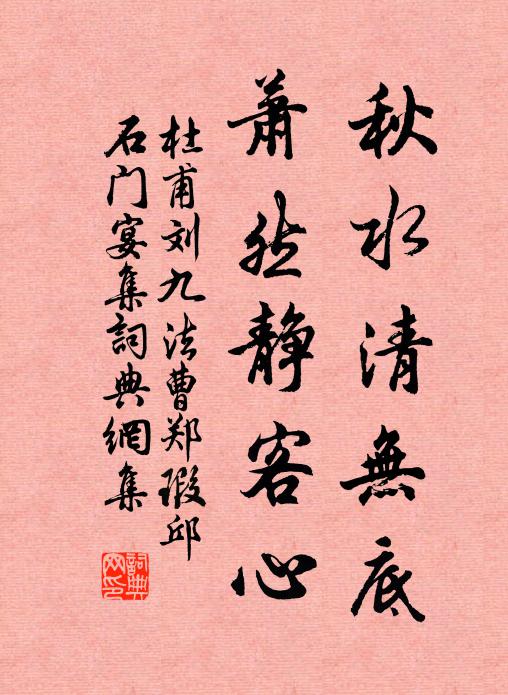 秋水清無底
蕭然静客心
杜甫刘九法曹郑瑕邱
石门宴集詞典網集
詞典
网印